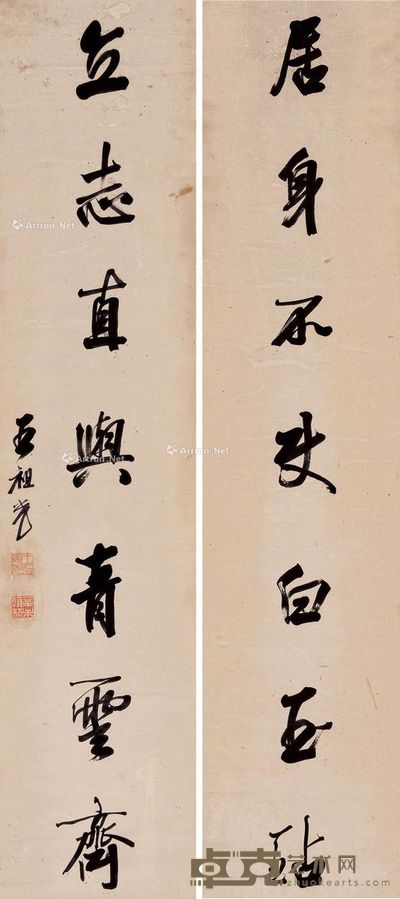 居身不使白玉玷
立志直與青雲齊
王祖光
Artron.Net
Artron.Net
Artron.Net
Artron.Net
卓克艺术网
zhuokearts.com